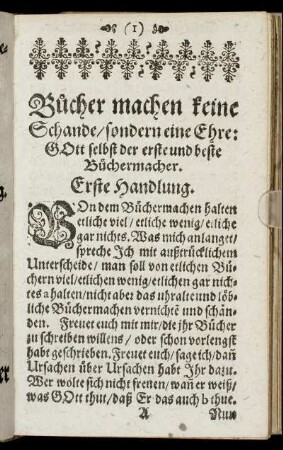 (1)
Bůcher machen keine
Schande/sondern eine Ehre:
GOtt selbst der erste und beste
Büchermacher.
Erste Handlung.
VOn dem Büchermachen halten
etliche viel/etliche wenig/etliche
gar nichts. Was mich anlanget/
spreche Ich mit außtrücklichem
Unterscheide/man soll von etlichen Bü-
chern viel/etlichen wenig/etlichen gar nich-
tes a halten/nicht aber das uhralte und löb-
liche Büchermachen vernichtẽ und schän-
den. Freuet euch mit mir/die jhr Bücher
zu schreiben willens/ oder schon vorlengst
habt geschrieben. Freuet euch/sage ich/dañ
Ursachen über Ursachen habt Ihr dazu.
Wer wolte sich nicht freuen/wañ er weiß/
was GOtt thut/daß Er das auch b thue.
A Nun